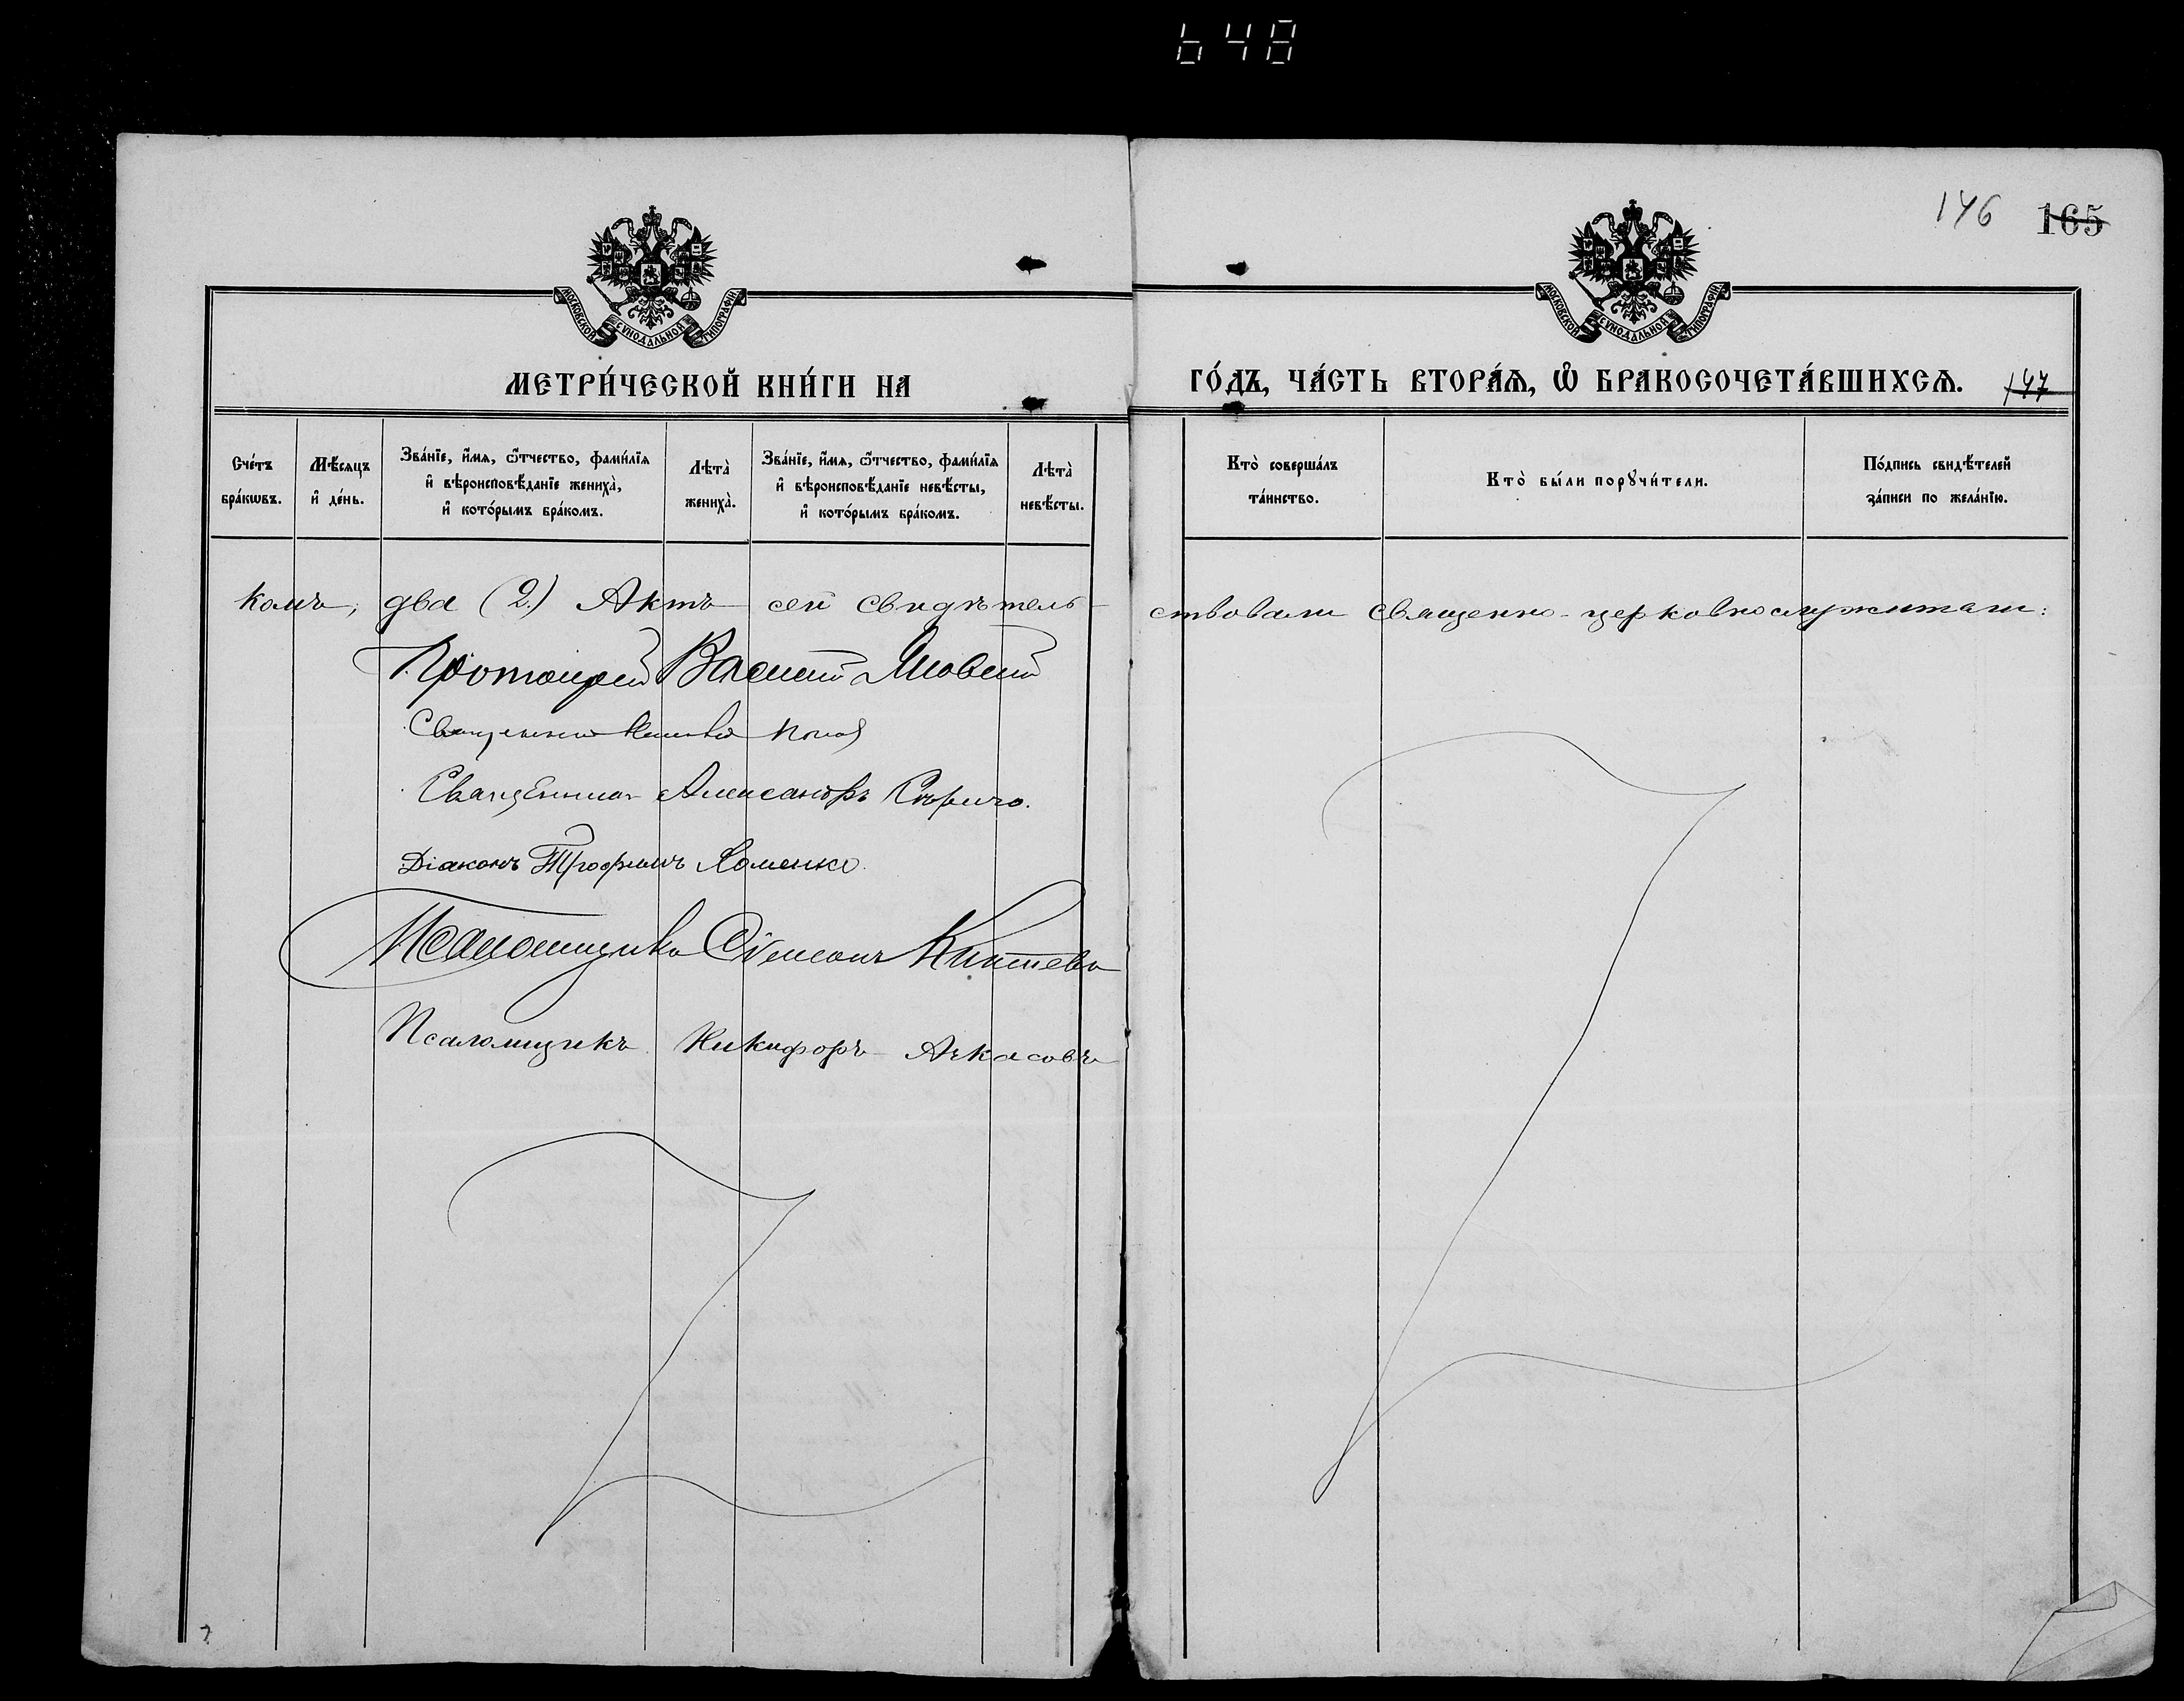 648
146 165
МОСКОВСКОЙ СѴНОДАЛЬНОЙ ТИПОГРАФІИ
МОСКОВСКОЙ СѴНОДАЛЬНОЙ ТИПОГРАФІИ
МЕТРИ́ЧЕСКОЙ КНИ́ГИ НА ГО́ДЪ, ЧА́СТЬ ВТОРА́Ѧ, Ѡ҆ БРАКОСОЧЕТА́ВШИХСѦ. 147
Сче́тъ
бра́кѡвъ.
Мѣ́сѧцъ
и҆ де́нь.
Зва́нїе, и҆́мѧ, ѻ҆́тчество, фами́лїѧ
и҆ вѣроисповѣ́данїе жениха̀,
и҆ кото́рымъ бра́комъ.
Лѣта̀
жениха̀.
Зва́нїе, и҆́мѧ, ѻ҆́тчество, фами́лїѧ
и҆ вѣроисповѣ́данїе невѣ́сты,
и҆ кото́рымъ бра́комъ.
Лѣта̀
невѣ́сты.
Кто̀ соверша́лъ
та́инство.
Кто̀ бы́ли порꙋчи́тели.
По́дпись свидѣ́телей
за́писи по жела́нїю.
комъ, два (2.) Актъ сей свидѣтель-ствовали священно-церковнослужители:
Протоіерей Василій
Священникъ Попов
Священникъ Александръ
Діаконъ Трофимъ Хоменко.
Псаломщикъ Сѵмеонъ
Псаломщикъ Никифоръ Аркасовъ